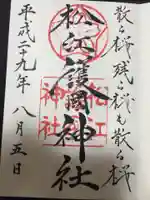 散る桜 残る桜も散る桜
松江護國神社
松江
神社
平成二十九年 八月五日